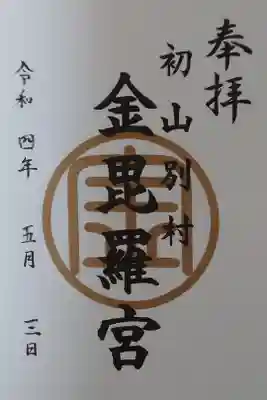 奉拝
初山別村
金毘羅宮
令和四年五月三日